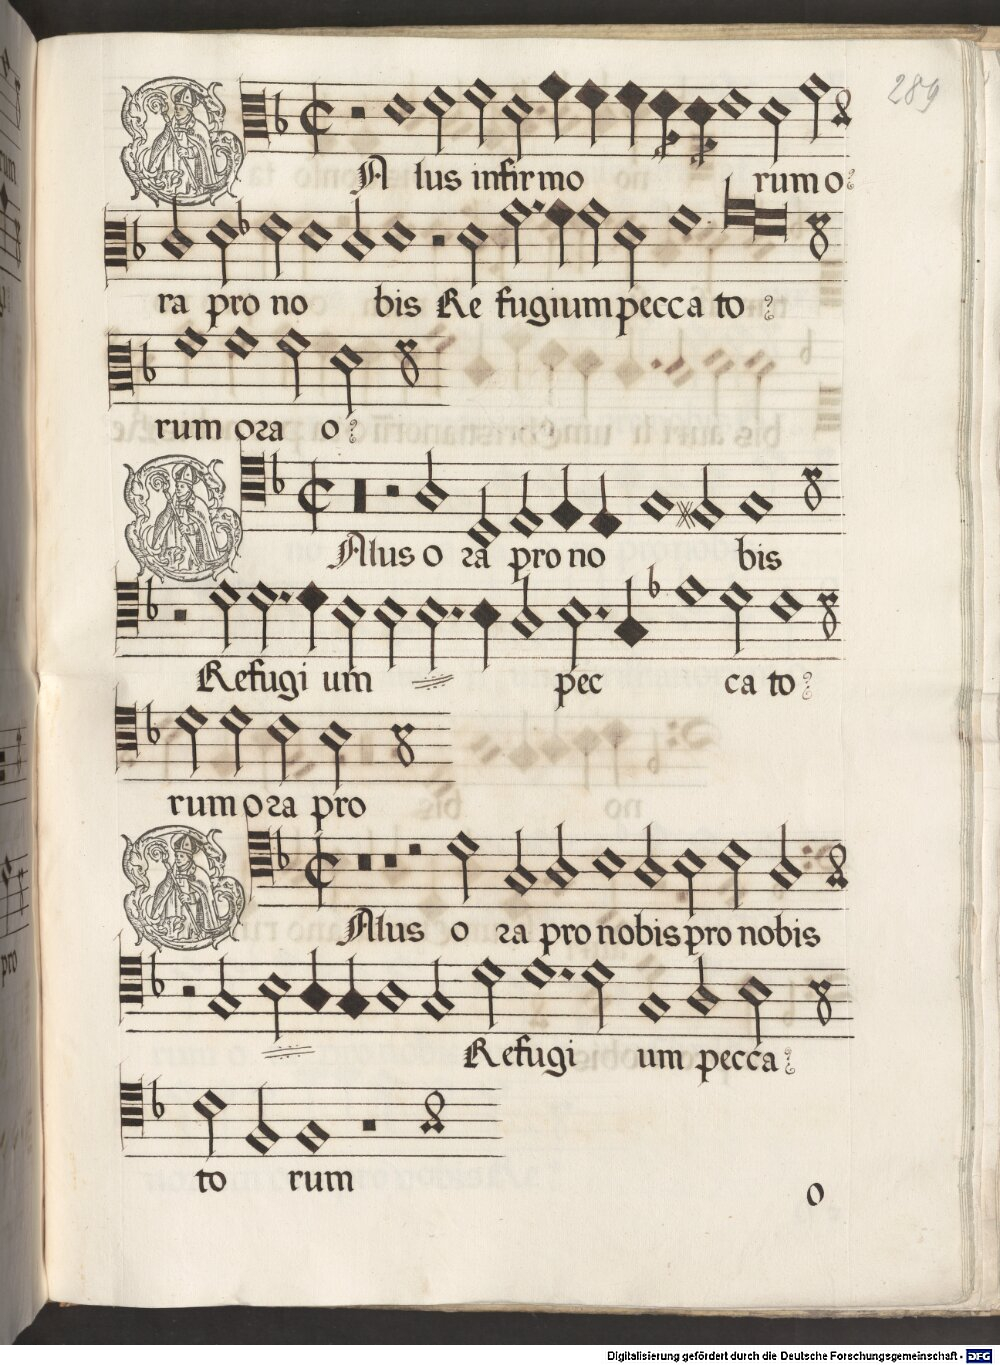 289
SAlus infirmo rum o
ra pro no bis Re fugium pecca to
rum ora o
SAlus o ra pro no bis
Refugi um pec ca to
rum ora pro
SAlus o ra pro nobis pro nobis
Refugi um pecca
to rum
o
Digitalisierung gefördert durch die Deutsche Forschungsgemeinschaft - DFG